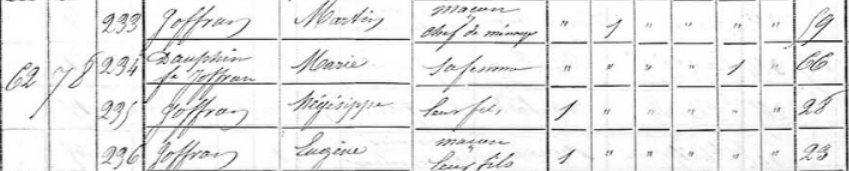 233 Joffran Martin maçon chef de ménage " 1 " " " " 59
62 78 234 Dauphin fe Joffran Marie sa femme " " " " 1 " 66
235 Joffran Hégésippe leur fils 1 " " " " " 28
236 Joffran Eugène maçon leur fils 1 " " " " " 23